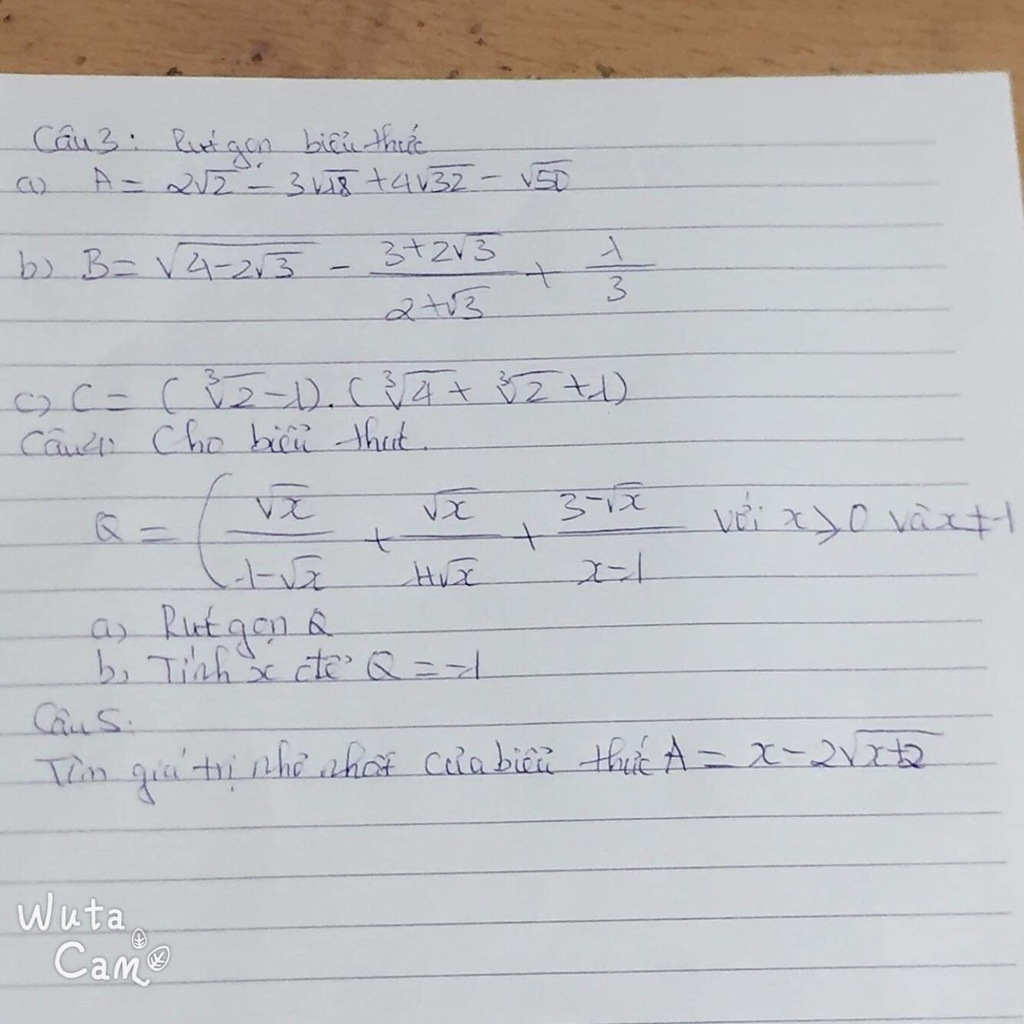 Câu 3: Rút gọn biểu thức
a) A = 2√2 - 3√18 + 4√32 - √50
b) B = √(4-2√3) - (3+2√3)/(2+√3) + 1/3
c) C = (∛2 - 1).(∛4 + ∛2 + 1)
Câu 4: Cho biểu thưc.
Q = ( √x/(1-√x) + √x/(1+√x) + (3-√x)/(x-1) với x ≥ 0 và x ≠ 1
a) Rút gọn Q
b, Tính x để Q = -1
Câu 5.
Tìm giá trị nhỏ nhất của biểu thức A = x - 2√(x+2)
Wuta
Cam